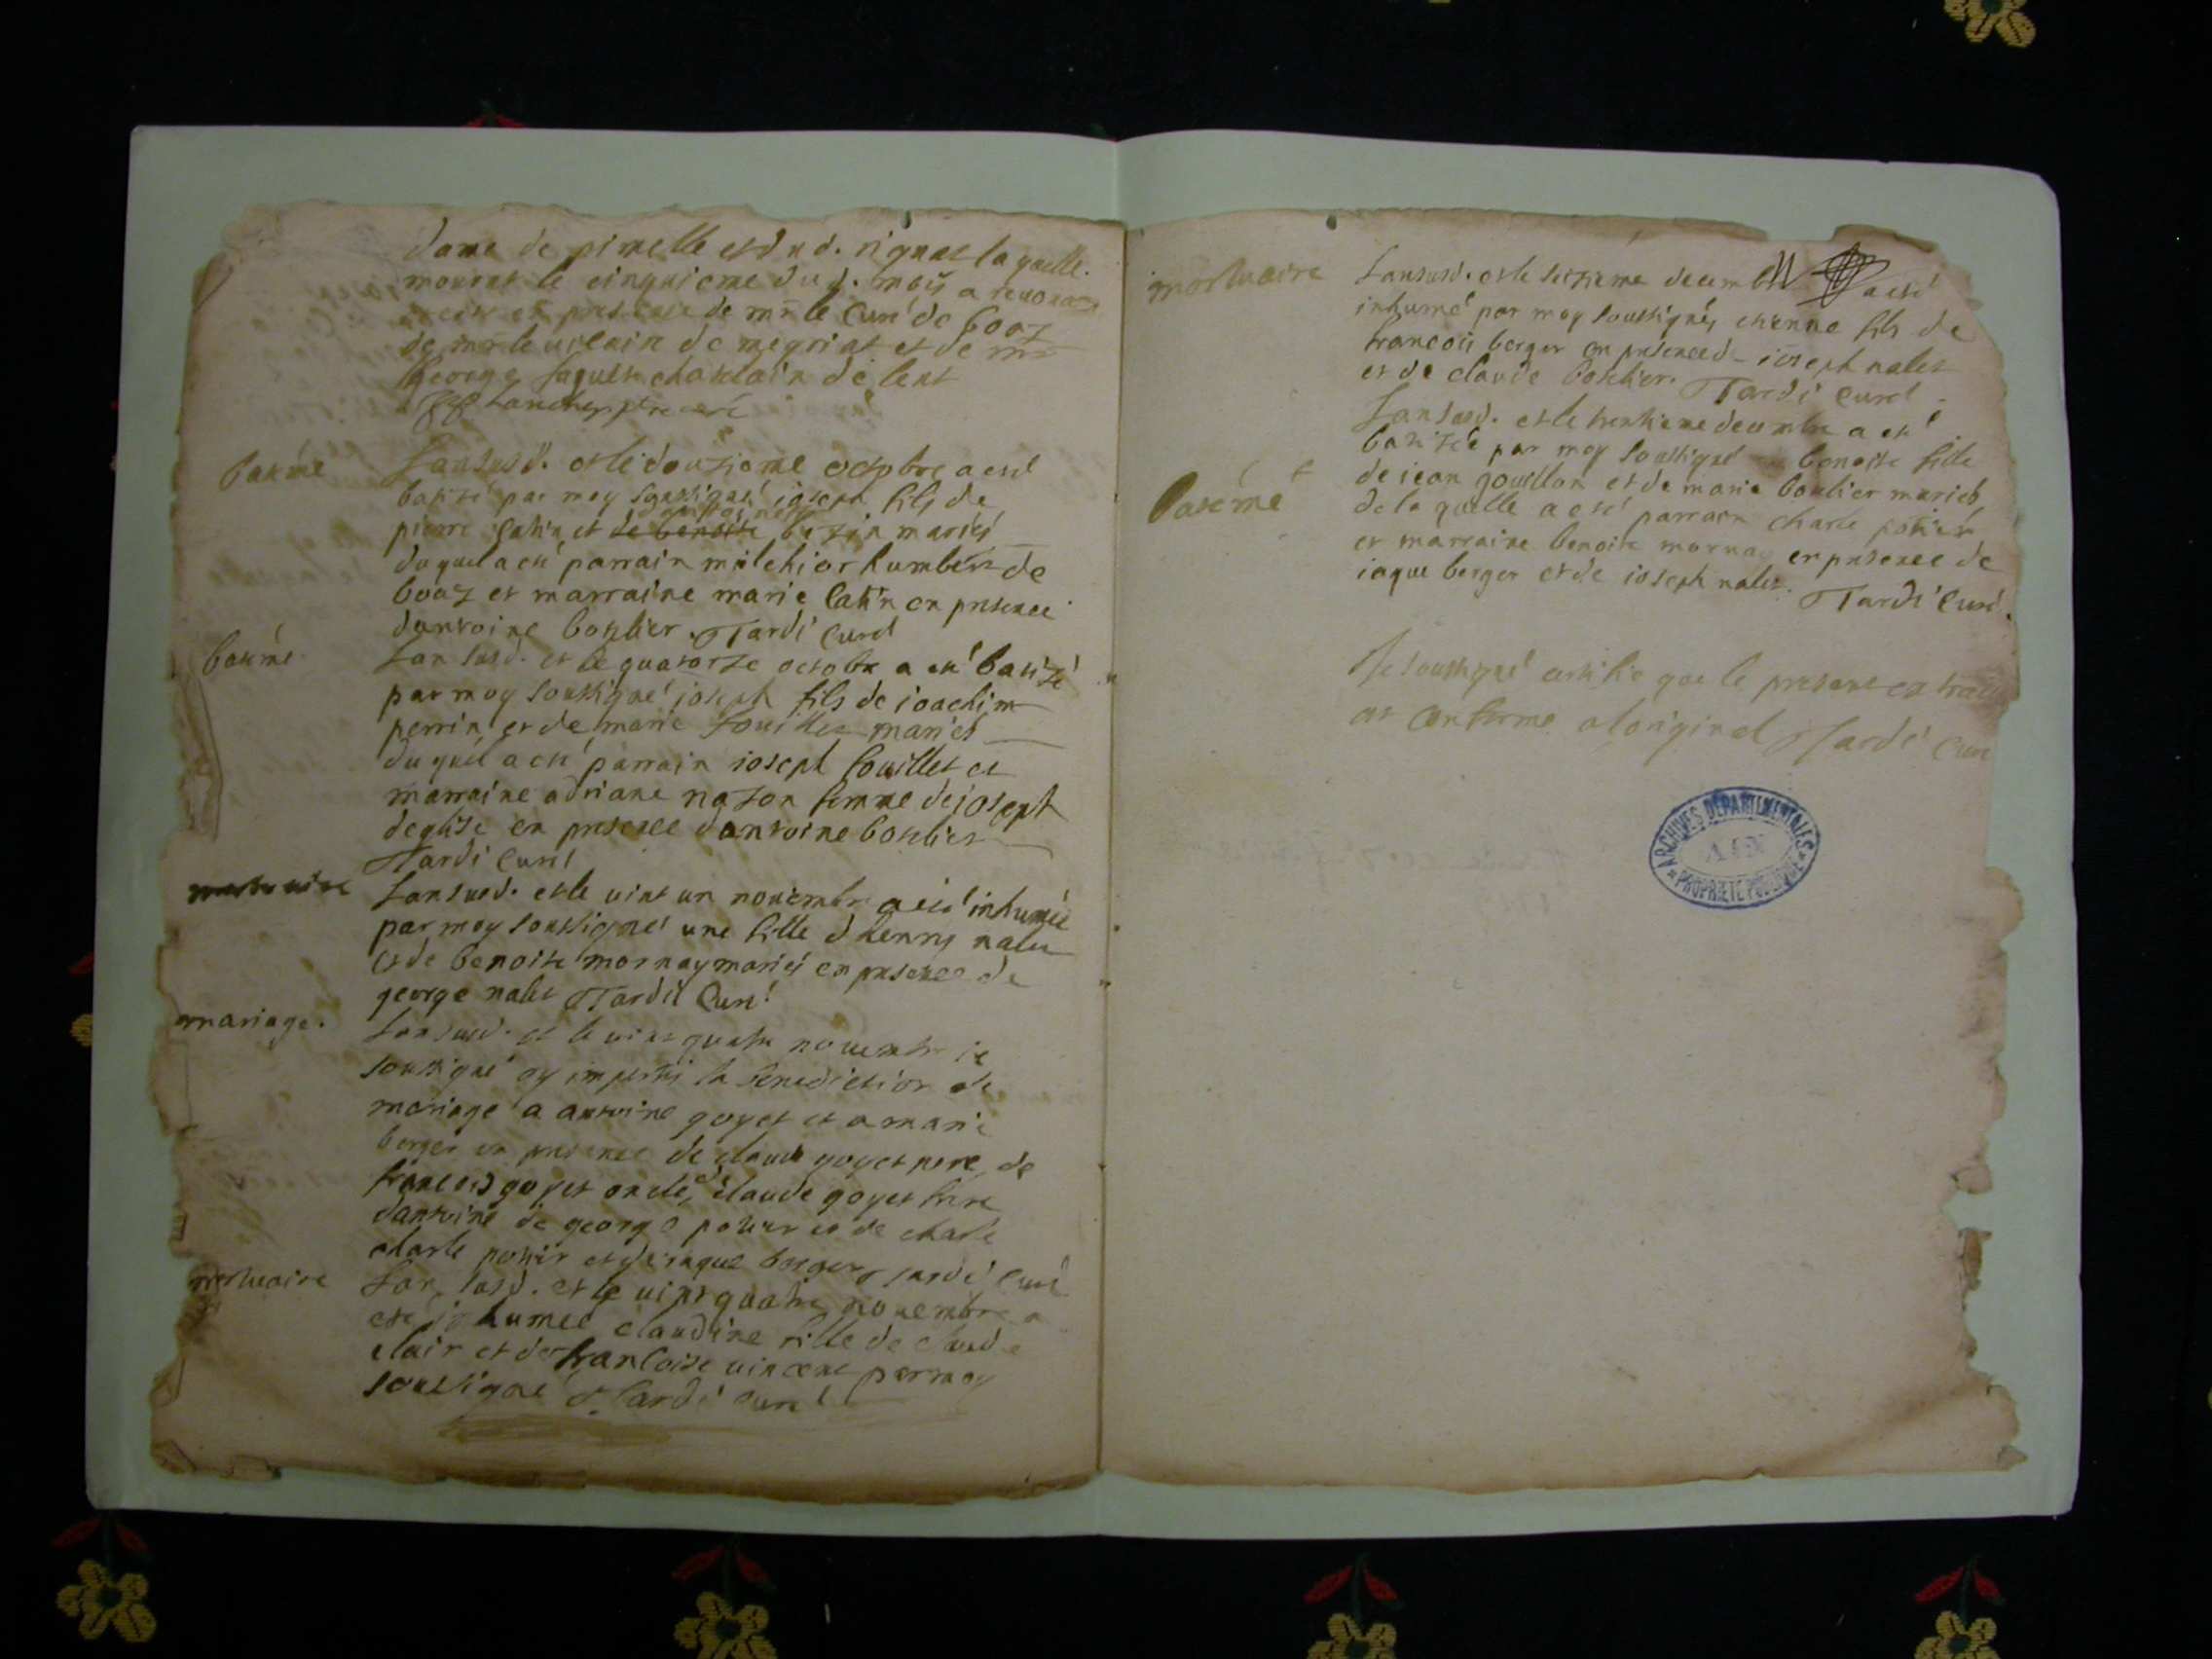 dame de pirelle et dud. rignat laquelle
mourut le cinquieme dud. mois
en presence de mr le curé de boaz
de mr le vicaire de megriat et de mr
george chatelain de lent
batéme
Lansusd. et le douzieme octobre a esté
batizé par moy soussigné joseph fils de
pierre catin et de benoite bezin mariés
duquel a eté parrain milchior humbert de
boaz et marraine marie catin en presence
dantoine boulier. Tardi curé
batéme
Lan susd. et le quatorze octobre a eté batizé
par moy soussigné joseph fils de joachim
perrin et de marie fouillet mariés
duquel a eté parrain joseph fouillet et
marraine adriane nazon femme de joseph
deglise en presence dantoine boulier
Tardi curé
mortuaire
Lansusd. et le vint un novembre a eté inhumée
par moy soussigné une fille dhenry nalet
et de benoite mornay mariés en presence de
george nalet Tardi curé
mariage.
Lansusd. et le vint quatre novembre je
soussigné ay imparti la benediction de
mariage a antoine goyet et a marie
berger en presence de claude goyet pere de
francois goyet oncle, claude goyet frere
dantoine de george potier et de charle
charle potier et de jaque berger Tardi curé
mortuaire
Lan susd. et le vint quatre novembre a
eté inhumée claudine fille de claude
clair et de francoise vincent par moy
soussigné Tardi curé
mortuaire
Lansusd. et le seizieme decembre a eté
inhumé par moy soussigné, etienne fils de
francois berger en presence de joseph nalet
et de claude boulier. Tardi curé
Lansusd. et le trentieme decembre a eté
batizée par moy soussigné benoite fille
batéme
de jean gouillon et de marie boulier mariés
de laquelle a eté parrain charle potier
et marraine benoite mornay en presence de
jaque berger et de joseph nalet. Tardi curé.
Je soussigné certifie que le present extrait
est conforme a loriginel Tardi curé
ARCHIVES DÉPARTEMENTALES
AIN
PROPRIÉTÉ PUBLIQUE